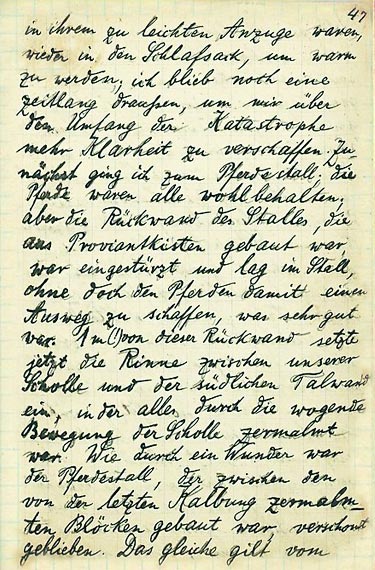 47
in ihrem zu leichten Anzuge waren,
wieder in den Schlafsack, um warm
zu werden; ich blieb noch eine
zeitlang draußen, um mir über
den Umfang der Katastrophe
mehr Klarheit zu verschaffen. Zu-
nächst ging ich zum Pferdestall; die
Pferde waren alle wohlbehalten;
aber die Rückwand des Stalles, die
aus Proviantkisten gebaut war,
war eingestürzt und lag im Stall,
ohne doch den Pferden damit einen
Ausweg zu schaffen, was sehr gut
war. 1 m () von dieser Rückwand setzte
jetzt die Rinne zwischen unserer
Scholle und der südlichen Talwand
ein, in der alles durch die wogende
Bewegung der Scholle zermalmt
war. Wie durch ein Wunder war
der Pferdestall, der zwischen den
von der letzten Kalbung zermalm-
ten Blöcken gebaut war, verschont
geblieben. Das gleiche gilt vom